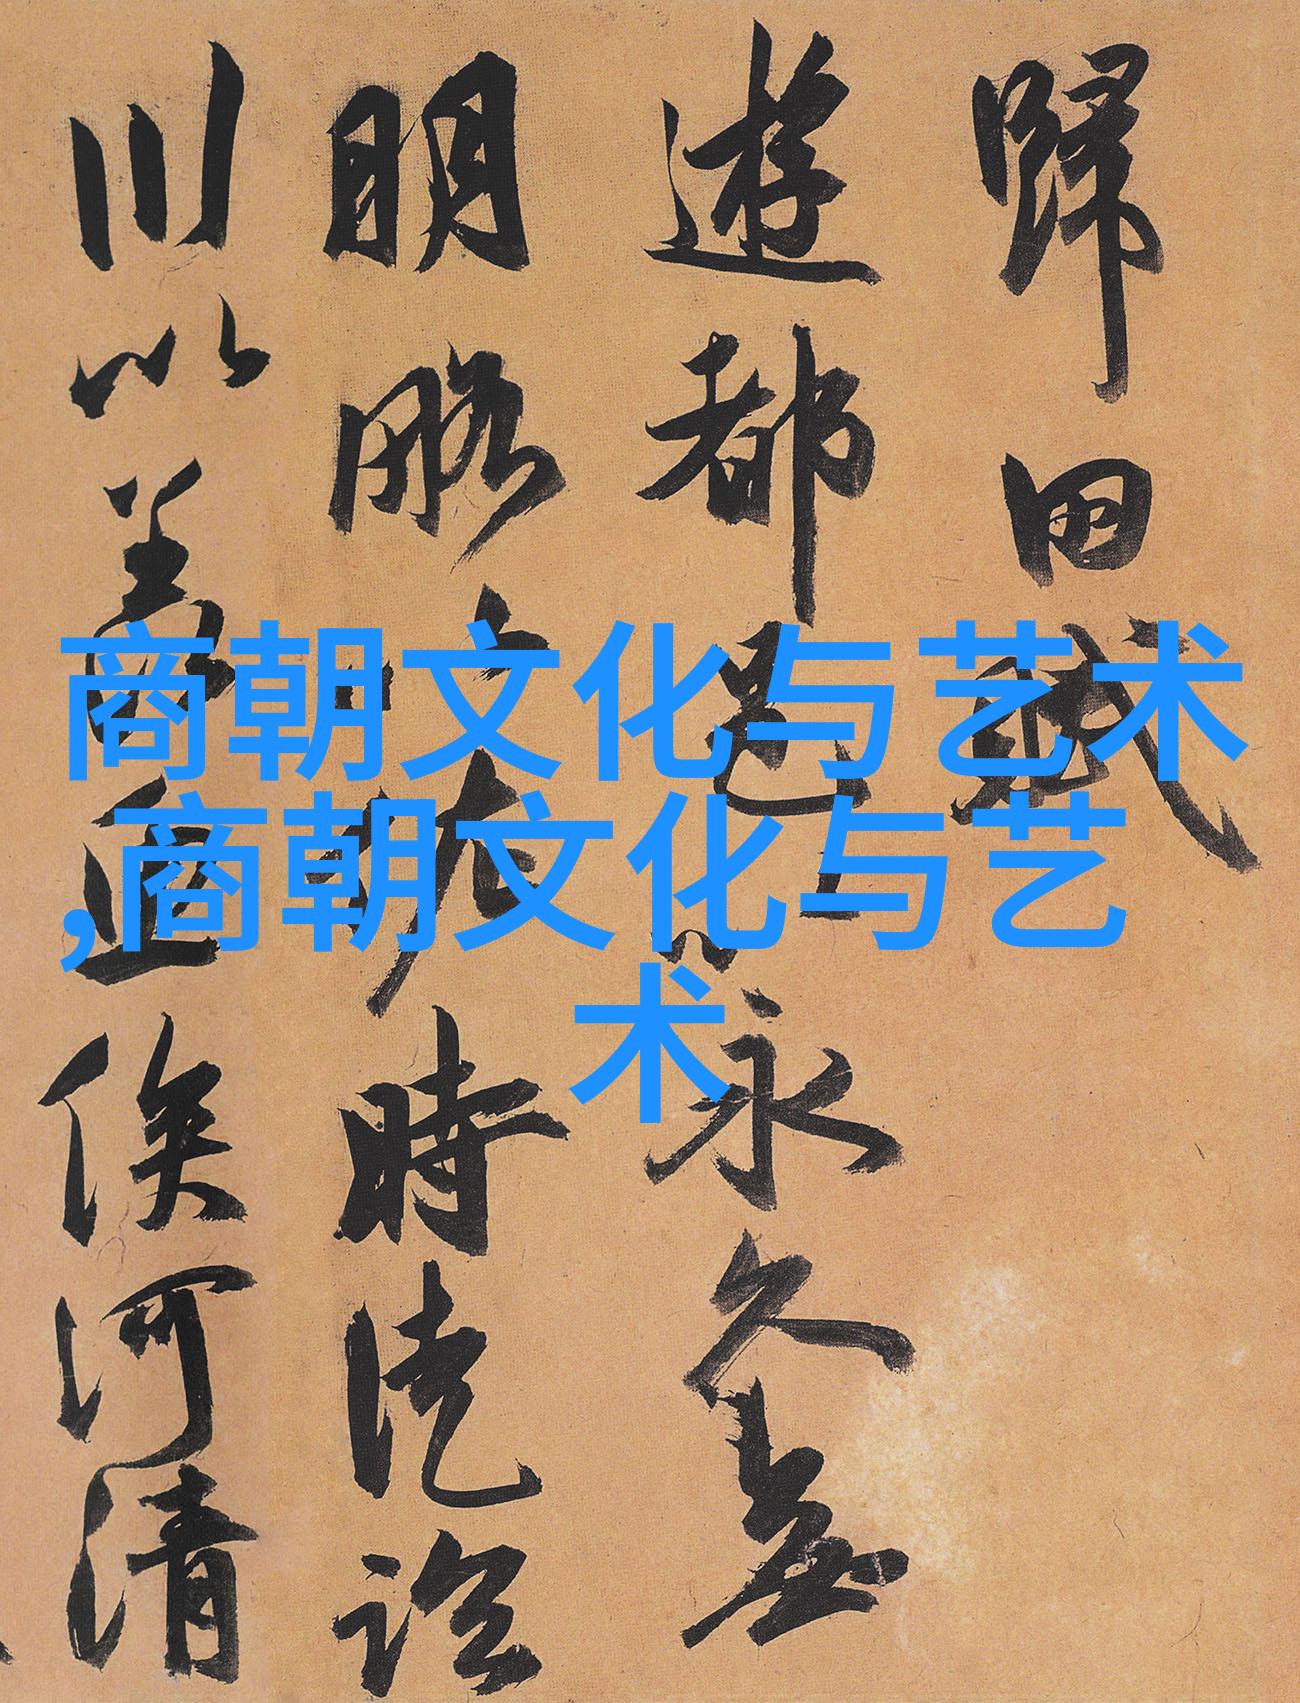 商朝文化与艺术
,商朝文化与艺
术
歸田賦
遊都邑以永久無
明略以佐時徒臨
川以羨魚俟河清